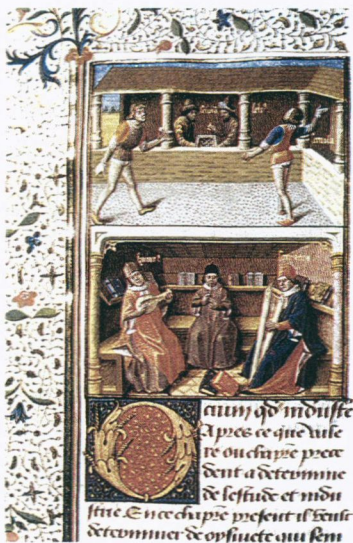 Apres ce que vale
re ou chapre prece
dent a determine
de lestude et indu
strie En ce chapre present il veult
determiner de oysiuete qui sem